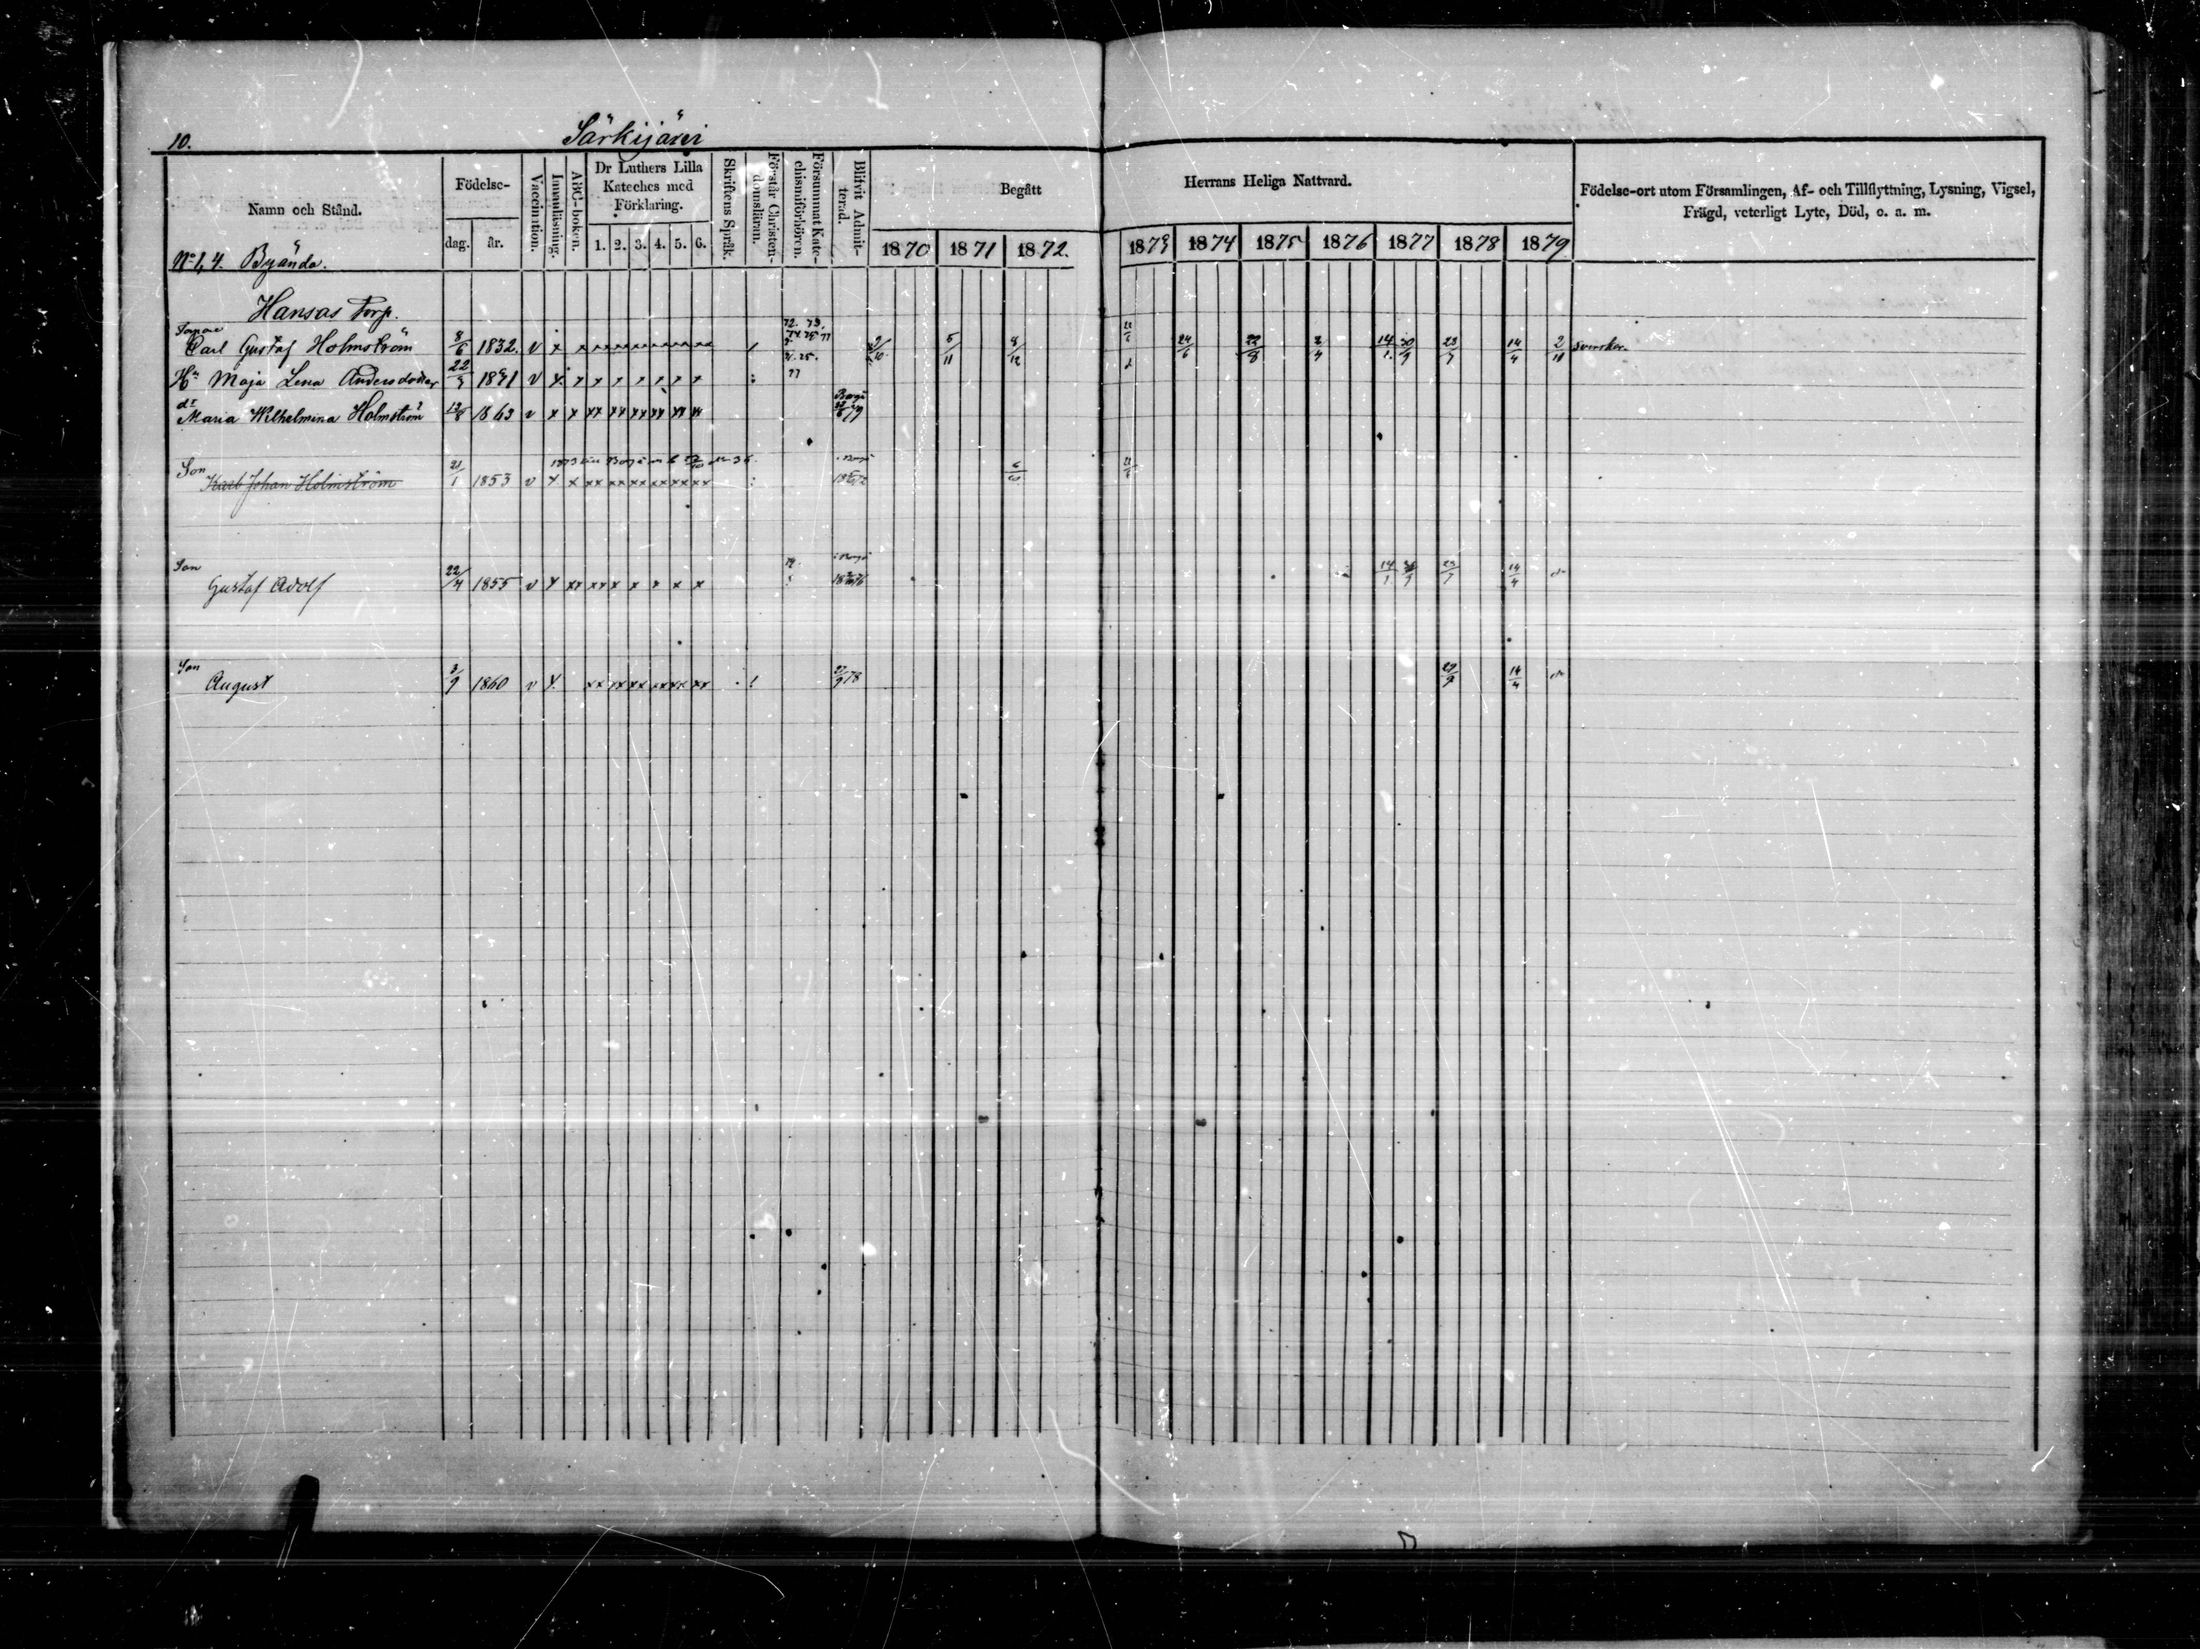 10. Särkijärvi
Namn och Stånd. Födelse- dag. år. Vaccination. Innanläsning. ABC-boken. Dr Luthers Lilla Kateches med Förklaring. 1. 2. 3. 4. 5. 6. Skriftens Språk. Förstår Christendomsläran. Försummat Katechismiförhören. Blifvit Admitterad. Begått Herrans Heliga Nattvard. Födelse-ort utom Församlingen, Af- och Tillflyttning, Lysning, Vigsel, Frägd, veterligt Lyte, Död, o. a. m.
1870 1871 1872. 1873 1874 1875 1876 1877 1878 1879
No 1, 4. Byända.
Hansas Torp.
72. 73.
Carl Gustaf Holmström 8/6 1832. v x x x x x x x x x x x x x 5/11 8/12 24/6 22/8 2/4 14/1 30/9 23/7 14/4 2/11
Hu Maja Lena Andersdotter 22/3 v x x x x x x x x : 77
dr Maria Wilhelmina Holmström 13/8 1863 v x x xx xx xx xx xx xx 79
Son
Karl Johan Holmström 21/1 1853 v x x xx xx xx xx xx xx :
Son
Gustaf Adolf 22/4 1855 v x xx xx x x x x x 14/1 30/9 23/7 14/4
Son
August 3/9 1860 v x. xx xx xx xx xx xx . ! 27/9 78 29/9 14/4